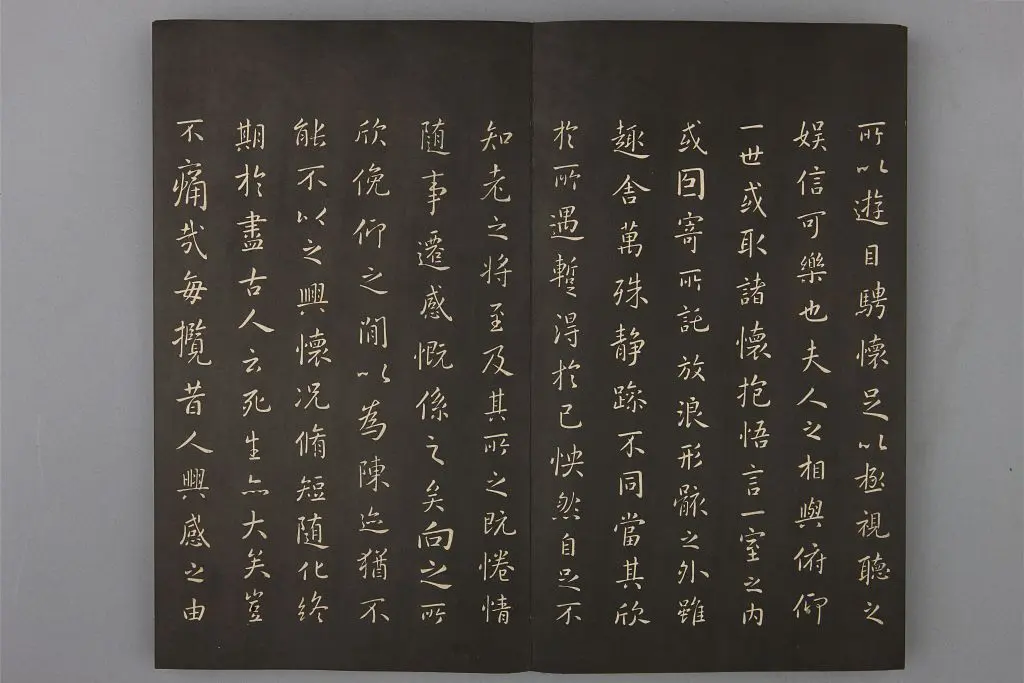 所以遊目騁懷足以極視聽之
娱信可樂也夫人之相與俯仰
一世或取諸懷抱悟言一室之内
或因寄所託放浪形骸之外雖
趣舍萬殊静躁不同當其欣
於所遇暫得於己怏然自足不
知老之将至及其所之既惓情
随事遷感慨係之矣向之所
欣俛仰之閒以為陳迹猶不
能不以之興懷况脩短随化終
期於盡古人云死生亦大矣豈
不痛哉每攬昔人興感之由